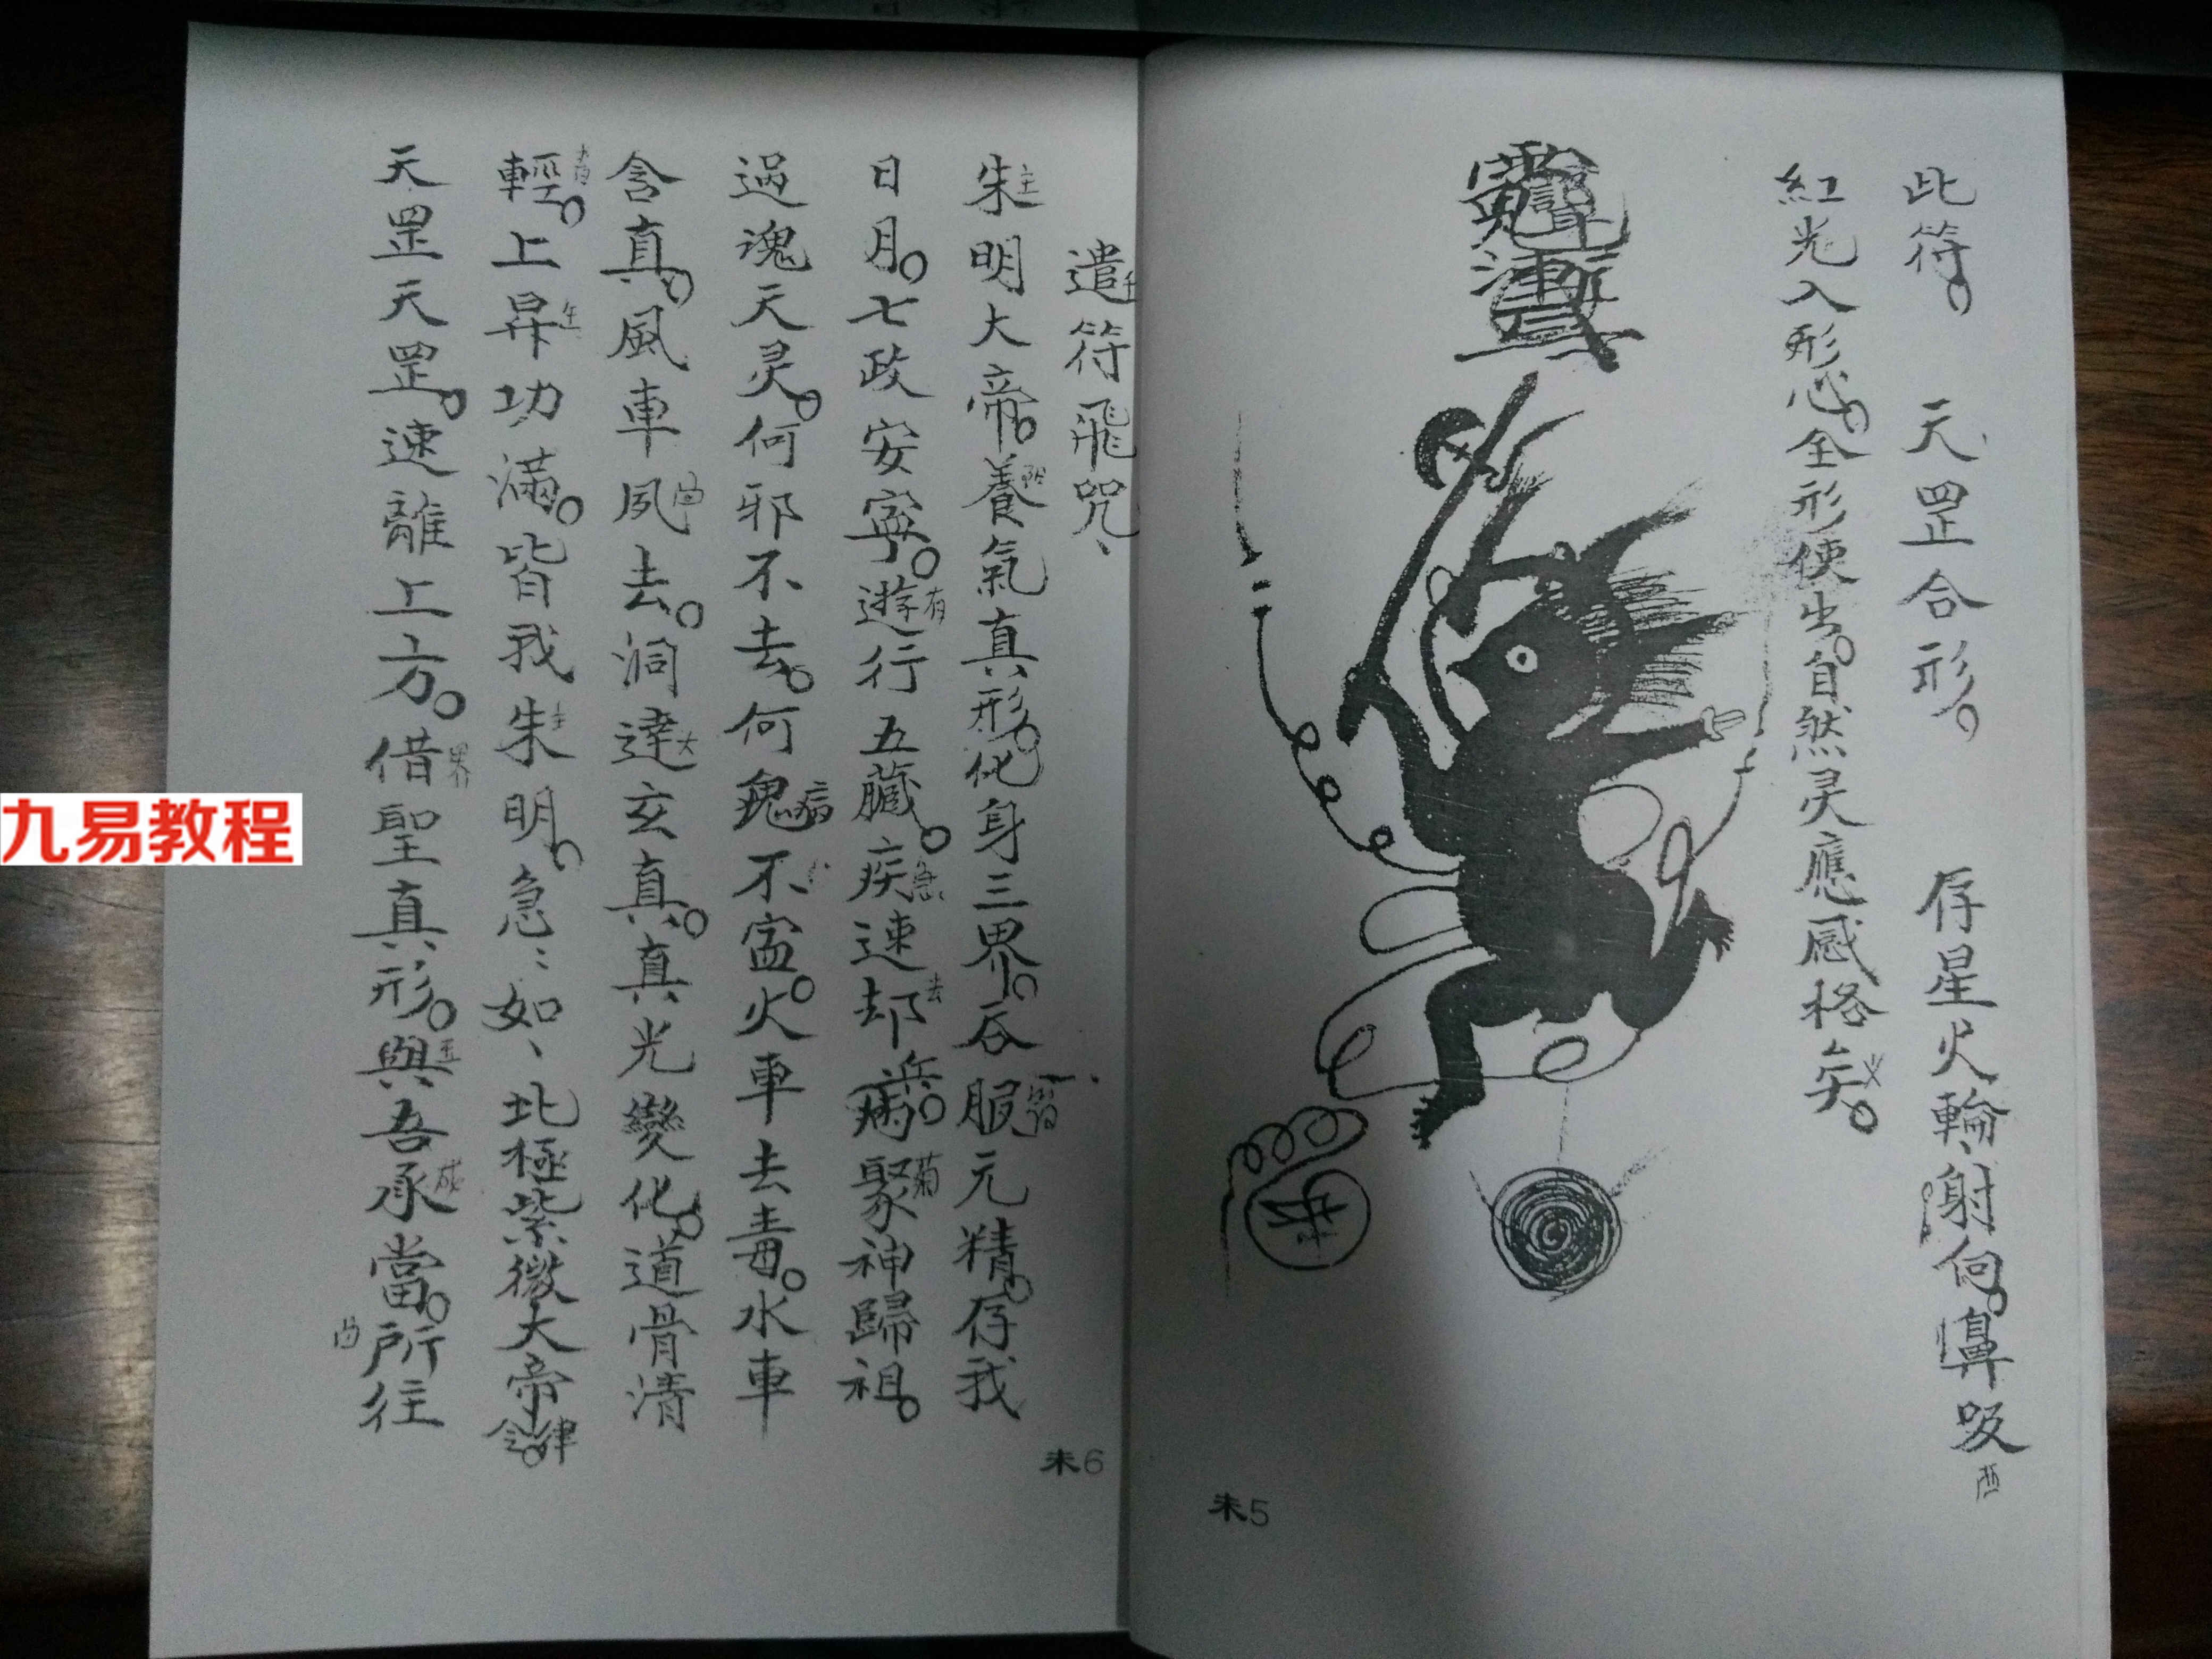 此符。天罡合形。存星火輪、射向。鼻吸
紅光入形心。全形使出。自然灵應感格矣。
朱5
遣符飛咒、
朱明大帝。養氣真形。化身三界。吞服元精。存我
日月。七政安寧。遊行五臟。疾速却病。聚神歸祖。
過魂天灵。何邪不去。何鬼不寍。火車去毒。水車
含真。風車夙去。洞達玄真。真光變化。道骨清
輕。上昇功滿。皆我朱明。急〻如、北極紫微大帝律令。
天罡天罡。速離上方。借聖真形。與吾承當。所往
朱6
九易教程